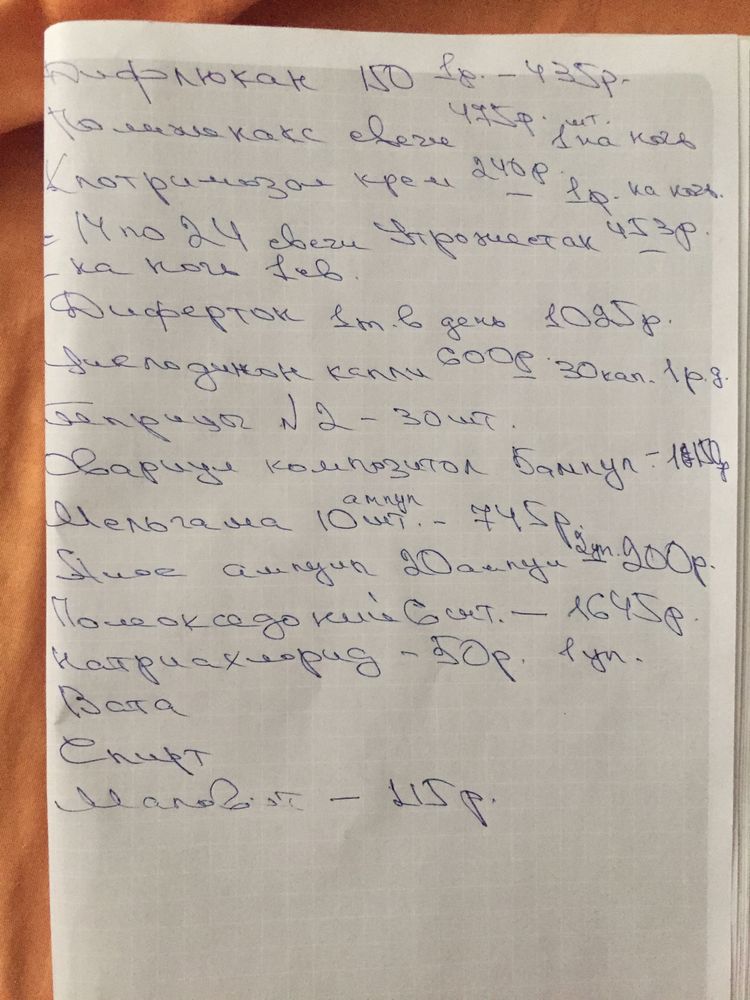 Дифлюкан 150 1р. - 435р.
Полижинакс свечи 475р. 1шт. на ночь
Клотримазол крем 240р. - 1р. на ночь.
= 14 по 24 свечи Утрожестан 453р.
- на ночь 1св.
Дифертон 1т. в день 1025р.
капли 600р. 30кап. 1р.д.
Шприцы №2 - 30шт.
Овариум композитол 5ампул -
Мельгама 10шт. ампул - 745р.
Алоэ ампулы 20ампул 2уп. - 200р.
Полиокседоний 6шт. - 1645р.
Натрияхлорид - 50р. 1уп.
Вата
Спирт
- 215р.